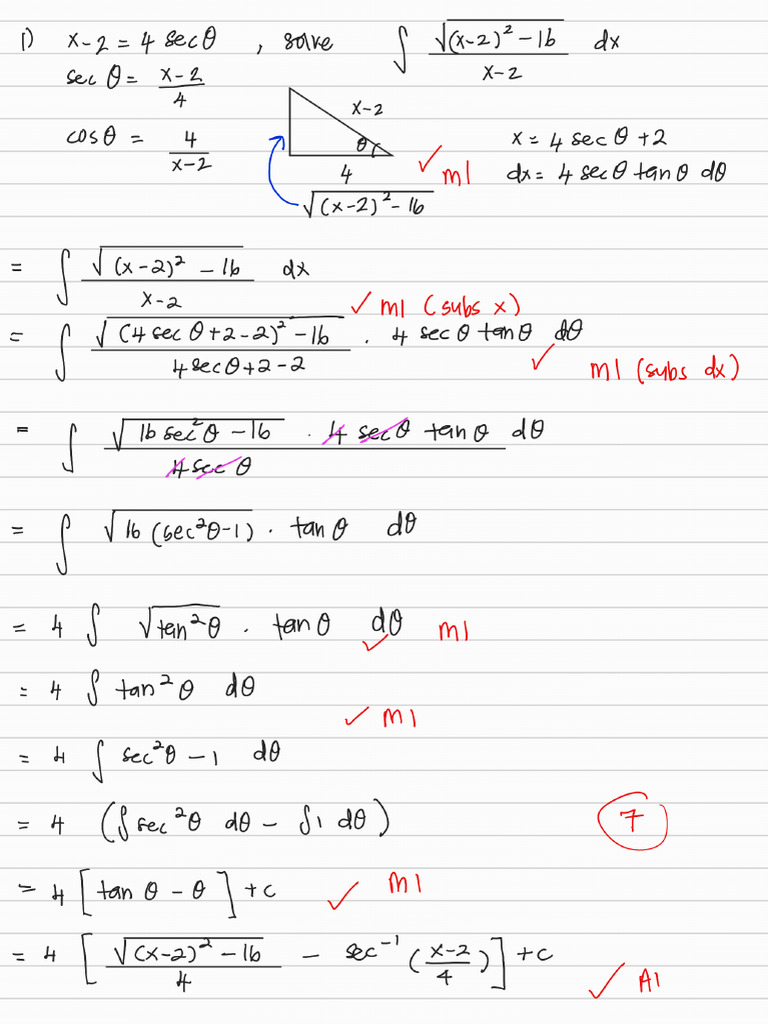 1) x-2 = 4 secθ , solve ∫ √((x-2)² - 16) / (x-2) dx
sec θ = (x-2)/4
cosθ = 4/(x-2)
x-2
θ
4
√((x-2)² - 16)
✓ m1
x = 4 secθ + 2
dx = 4 secθ tanθ dθ
= ∫ √((x-2)² - 16) / (x-2) dx
✓ m1 (subs x)
= ∫ √((4 secθ + 2 - 2)² - 16) / (4 secθ + 2 - 2) . 4 secθ tanθ dθ
✓ m1 (subs dx)
= ∫ √(16 sec²θ - 16) . 4 secθ tanθ / (4 secθ) dθ
= ∫ √(16 (sec²θ - 1)) . tanθ dθ
= 4 ∫ √(tan²θ) . tanθ dθ ✓ m1
= 4 ∫ tan²θ dθ
✓ m1
= 4 ∫ sec²θ - 1 dθ
= 4 (∫ sec²θ dθ - ∫ 1 dθ)
7
= 4 [tanθ - θ] + c ✓ M1
= 4 [√((x-2)² - 16) / 4 - sec⁻¹ ((x-2)/4)] + c
✓ A1